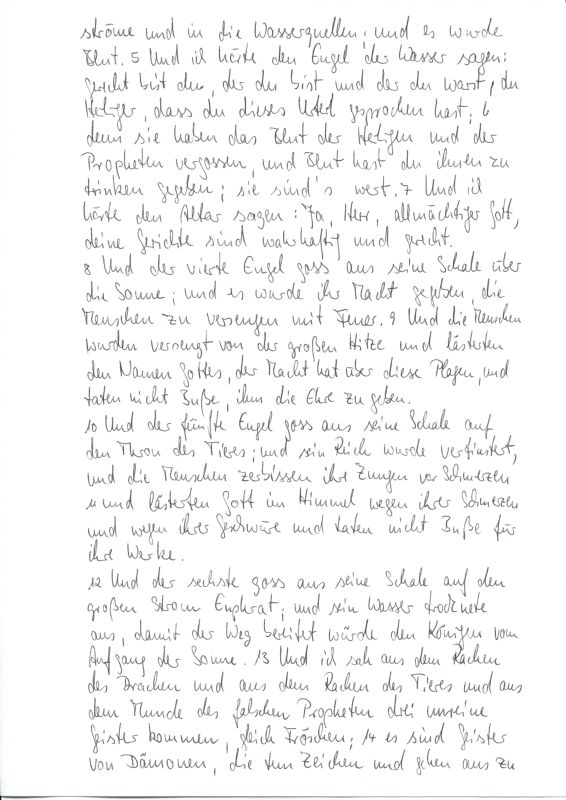 ströme und in die Wasserquellen; und es wurde
Blut. 5 Und ich hörte den Engel der Wasser sagen:
gerecht bist du, der du bist und der du warst, du
Heiliger, dass du dieses Urteil gesprochen hast; 6
denn sie haben das Blut der Heiligen und der
Propheten vergossen, und Blut hast du ihnen zu
trinken gegeben; sie sind's wert. 7 Und ich
hörte den Altar sagen: Ja, Herr, allmächtiger Gott,
deine Gerichte sind wahrhaftig und gerecht.
8 Und der vierte Engel goss aus seine Schale über
die Sonne; und es wurde ihr Macht gegeben, die
Menschen zu versengen mit Feuer. 9 Und die Menschen
wurden versengt von der großen Hitze und lästerten
den Namen Gottes, der Macht hat über diese Plagen, und
taten nicht Buße, ihm die Ehre zu geben.
10 Und der fünfte Engel goss aus seine Schale auf
den Thron des Tieres; und sein Reich wurde verfinstert,
und die Menschen zerbissen ihre Zungen vor Schmerzen
11 und lästerten Gott im Himmel wegen ihrer Schmerzen
und wegen ihrer Geschwüre und taten nicht Buße für
ihre Werke.
12 Und der sechste goss aus seine Schale auf den
großen Strom Euphrat; und sein Wasser trocknete
aus, damit der Weg bereitet würde den Königen vom
Aufgang der Sonne. 13 Und ich sah aus dem Rachen
des Drachen und aus dem Rachen des Tieres und aus
dem Munde des falschen Propheten drei unreine
Geister kommen, gleich Fröschen; 14 es sind Geister
von Dämonen, die tun Zeichen und gehen aus zu